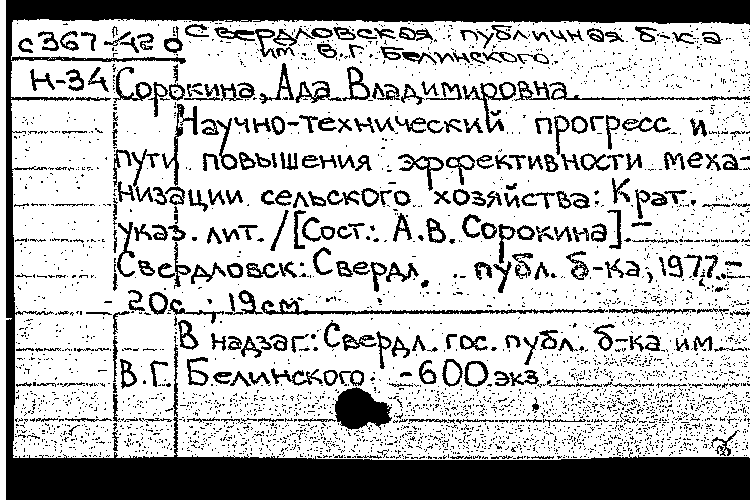 с367-420 Свердловская публичная б-ка
им. В.Г. Белинского.
Н-34 Сорокина, Ада Владимировна.
Научно-технический прогресс и
пути повышения эффективности меха-
низации сельского хозяйства: Крат.
указ. лит./[Сост.: А.В. Сорокина].-
Свердловск: Свердл. публ. б-ка, 1977.-
20с.; 19см.
В надзаг.: Свердл. гос. публ. б-ка им.
В.Г. Белинского. -600 экз.